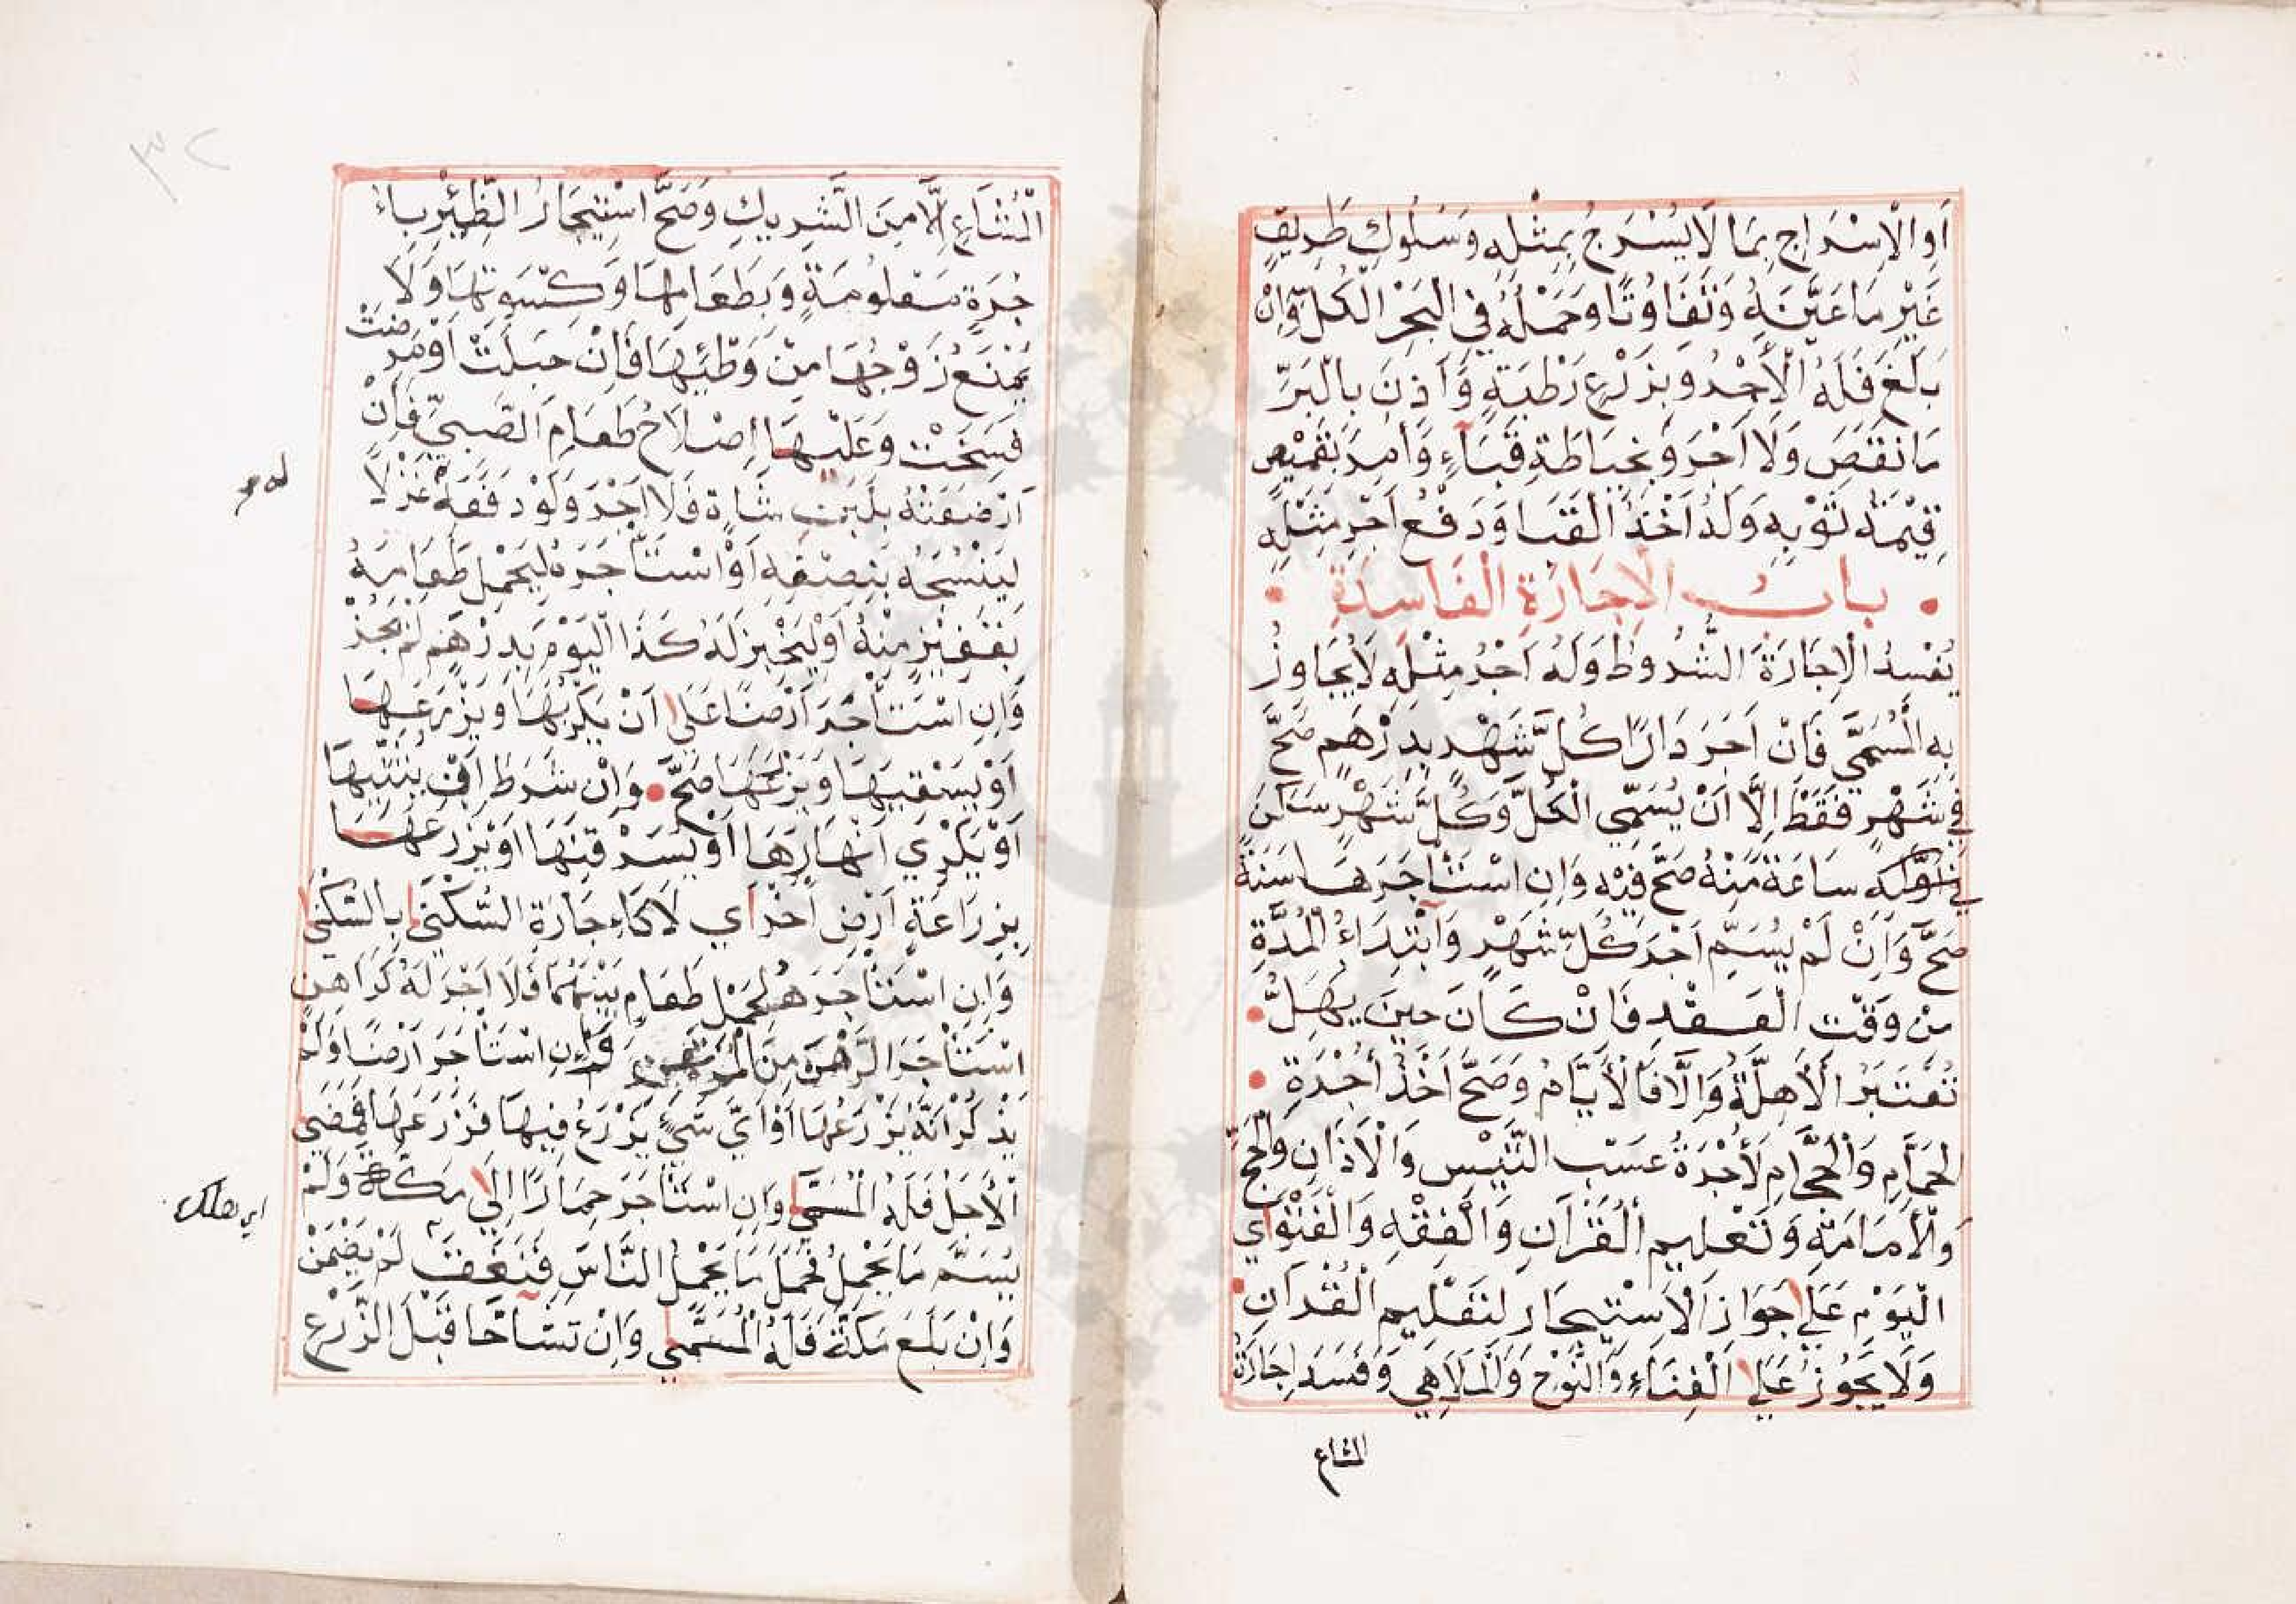 اَوِ الْاِسْرَاجِ بِمَا لَا يُسْرَجُ بِمِثْلِهِ وَسُلُوكِ طَرِيقٍ
غَيْرِ مَا عَيَّنَهُ وَتَفَاوُتًا وَحَمْلُهُ فِي الْبَحْرِ الْكُلَّ وَاِنْ
بَلَغَ فَلَهُ الْأَجْرُ وَبِزَرْعِ رَطْبَةٍ وَأَذِنَ بِالْبُرِّ
مَا نَقَصَ وَلَا اَجْرَ وَبِخِيَاطَةِ قَبَاءٍ وَأَمَرَ بِقَمِيْصٍ
قِيْمَةُ ثَوْبِهِ وَلَهُ اَخْذُ الْقَبَا وَدَفْعُ اَجْرِ مِثْلِهِ
بابُ الْاِجَارَةِ الْفَاسِدَةِ
يُفْسِدُ الْاِجَارَةَ الشُّرُوطُ وَلَهُ اَجْرُ مِثْلِهِ لَا يُجَاوِزُ
بِهِ الْمُسَمَّي فَاِنْ اَجَرَ دَارًا كُلَّ شَهْرٍ بِدِرْهَمٍ صَحَّ
فِي شَهْرٍ فَقَطْ اِلَّا اَنْ يُسَمِّي الْكُلَّ وَكُلُّ شَهْرٍ سَكَنَ
فِي اَوَّلِهِ سَاعَةً مِنْهُ صَحَّ فِيْهِ وَاِنِ اسْتَأْجَرَهَا سَنَةً
صَحَّ وَاِنْ لَمْ يُسَمِّ اَجْرَ كُلِّ شَهْرٍ وَابْتِدَاءُ الْمُدَّةِ
مِنْ وَقْتِ الْعَقْدِ فَاِنْ كَانَ حِينَ يُهَلُّ
تُعْتَبَرُ الْأَهِلَّةُ وَاِلَّا فَالْأَيَّامُ وَصَحَّ اَخْذُ اُجْرَةِ
الْحَمَّامِ وَالْحَجَّامِ لَا أُجْرَةُ عَسْبِ التَّيْسِ وَالْاَذَانِ وَالْحَجِّ
وَالْاِمَامَةِ وَتَعْلِيمِ الْقُرْاَنِ وَالْفِقْهِ وَالْفَتْوَاي
الْيَوْمَ عَلَي جَوَازِ الْاِسْتِيجَارِ لِتَعْلِيمِ الْقُرْاَنِ
وَلَا يَجُوزُ عَلَي الْغِنَاءِ وَالنَّوْحِ وَالْمَلَاهِي وَفَسَدَ اِجَارَةُ
المشاع
٣٢
الْمُشَاعِ اِلَّا مِنَ الشَّرِيكِ وَصَحَّ اسْتِيجَارُ الظِّئْرِ بِاُ
جْرَةٍ مَعْلُومَةٍ وَبِطَعَامِهَا وَكِسْوَتِهَا وَلَا
يُمْنَعُ زَوْجُهَا مِنْ وَطْئِهَا فَاِنْ حَبِلَتْ اَوْ مَرِضَتْ
فُسِخَتْ وَعَلَيْهَا اِصْلَاحُ طَعَامِ الصَّبِيِّ فَاِنْ
اَرْضَعَتْهُ بِلَبَنِ شَاةٍ فَلَا اَجْرَ وَلَوْ دَفَعَ غَزْلًا
لِيَنْسُجَهُ بِنِصْفِهِ اَوْ اسْتَأْجَرَهُ لِيَحْمِلَ طَعَامَهُ
بِقَفِيْزٍ مِنْهُ اَوْ لِيَخْبِزَ لَهُ كَذَا الْيَوْمَ بِدِرْهَمٍ لَمْ يَجُزْ
وَاِنِ اسْتَأْجَرَ اَرْضًا عَلَي اَنْ يَكْرِبَهَا وَيَزْرَعَهَا
اَوْ يَسْقِيَهَا وَيَزْرَعَهَا صَحَّ وَاِنْ شَرَطَ اَنْ يُثَنِّيهَا
اَوْ يَكْرِي اَنْهَارَهَا اَوْ يُسَرْقِنَهَا اَوْ يَزْرَعَهَا
بِزِرَاعَةِ اَرْضٍ اُخْرَاي لَا كَاِجَارَةِ السُّكْنَي بِالسُّكْنَي
وَاِنِ اسْتَأْجَرَهُ لِحَمْلِ طَعَامٍ بَيْنَهُمَا فَلَا اَجْرَ لَهُ كَرَاهِنٍ
اسْتَأْجَرَ الرَّهْنَ مِنَ الْمُرْتَهِنِ وَاِنِ اسْتَأْجَرَ اَرْضًا وَلَمْ
يَذْكُرْ اَنَّهُ يَزْرَعُهَا اَوْ اَيَّ شَيْءٍ يَزْرَعُ فِيهَا فَزَرَعَهَا فَمَضَي
الْأَجَلُ فَلَهُ الْمُسَمَّي وَاِنِ اسْتَأْجَرَ حِمَارًا اِلَي مَكَّةَ وَلَمْ
يُسَمِّ مَا يَحْمِلُ فَحَمَلَ مَا يَحْمِلُ النَّاسُ فَنَفَقَ لَمْ يَضْمَنْ
وَاِنْ بَلَغَ مَكَّةَ فَلَهُ الْمُسَمَّي وَاِنْ تَشَاحَّا قَبْلَ الزَّرْعِ